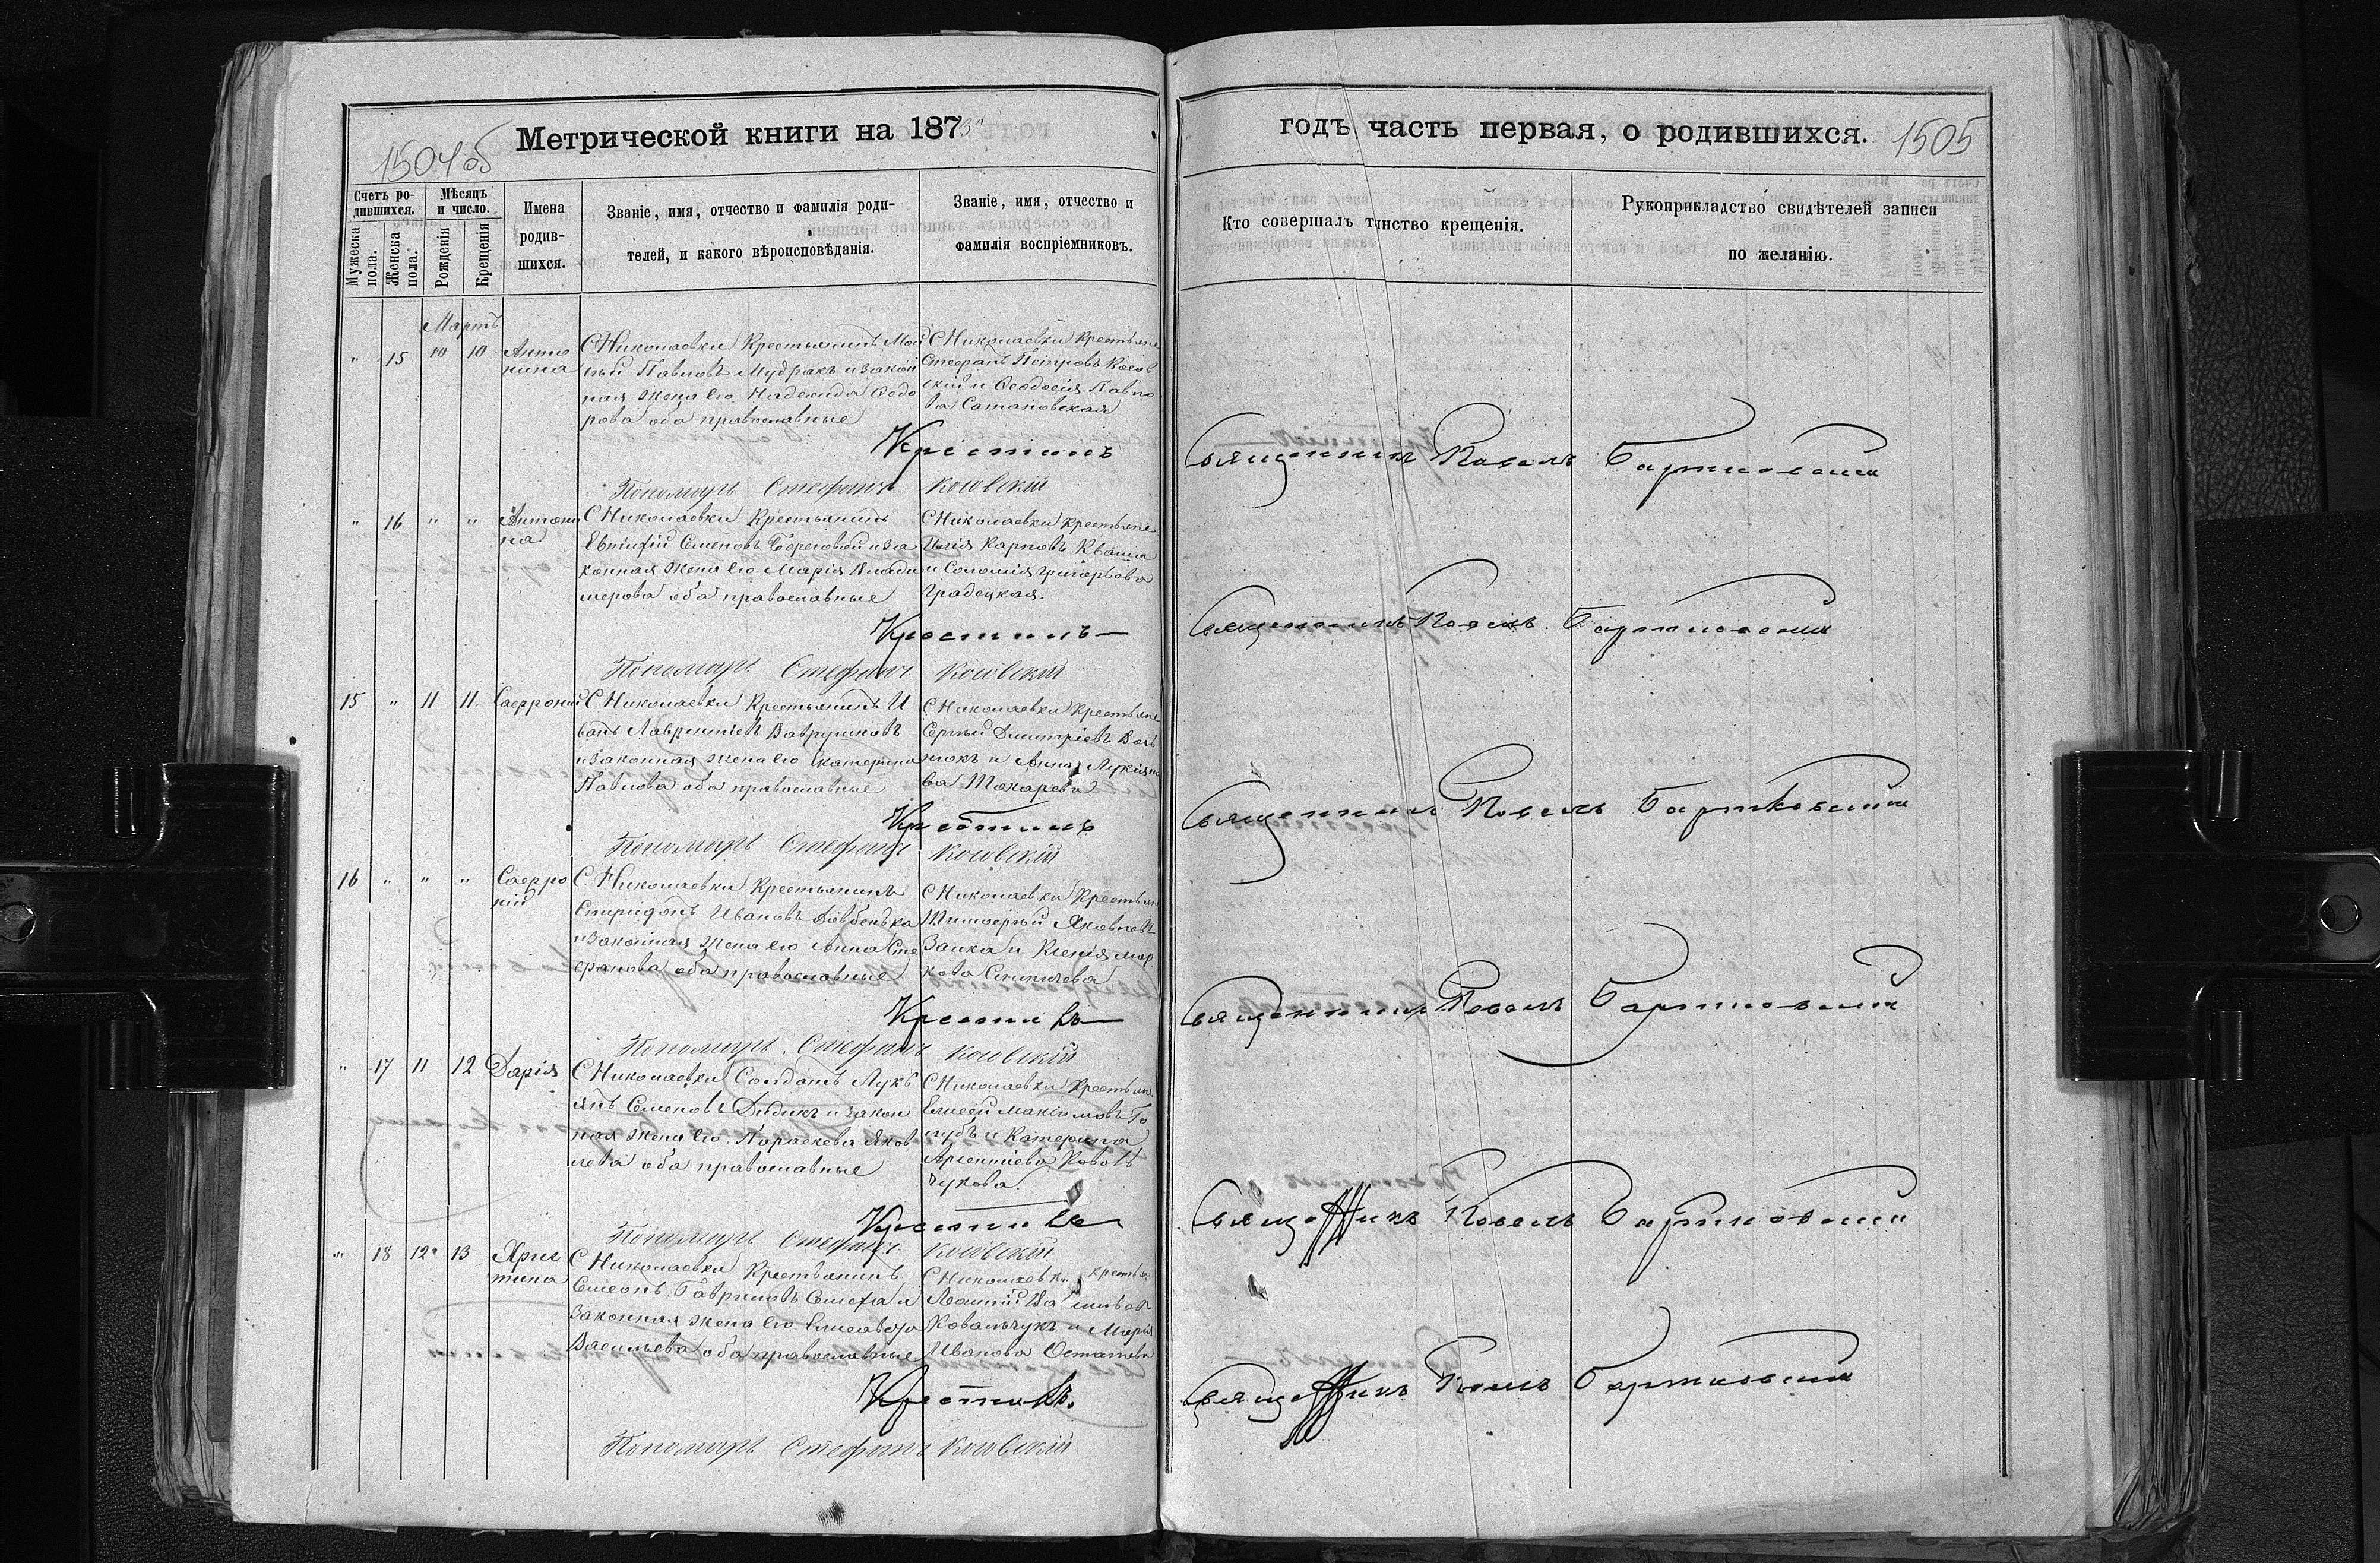 1504об
Метрической книги на 1873
годъ часть первая, о родившихся.
1505
Счетъ ро-
дившихся.
Мужеска
пола.
Женска
пола.
Мѣсяцъ
и число.
Рожденія
Крещенія
Имена
родив-
шихся.
Званіе, имя, отчество и фамилія роди-
телей, и какого вѣроисповѣданія.
Званіе, имя, отчество и
фамилія воспріемниковъ.
Кто совершалъ таинство крещенія.
Рукоприкладство свидѣтелей записи
по желанію.
Мартъ
" 15 10 10 Анто
нина
С Николаевки Крестьянинъ
Павловъ Мудракъ и закон
ная жена его Надежда Ѳедо
рова оба православные
С Николаевки крестьяне
Стефанъ Петровъ Косов
скій и Ѳеодосія Павло
ва Сатановская
Крестилъ Священникъ Павелъ Бартковскій
Пономарь Стефанъ Косовскій
" 16 " " Антони
на
С Николаевки Крестьянинъ
Евтихій Семеновъ Береговой и за
конная жена его Марія Влади
мерова оба православные
С Николаевки крестьяне
Илія Карповъ Кваша
и Соломія Григорьева
Градецкая.
Крестилъ Священникъ Павелъ Бартковскій
Пономарь Стефанъ Косовскій
15 " 11 11 Софроній
С Николаевки Крестьянинъ И
ванъ Лаврентіевъ
и законная жена его Екатерина
Павлова оба православные
С Николаевки крестьяне
Сергій Димитріевъ
и Анна Лукіяно
ва Токарева
Крестилъ Священникъ Павелъ Бартковскій
Пономарь Стефанъ Косовскій
16 " " " Софро
ній
С Николаевки Крестьянинъ
Спиридонъ Ивановъ Довбенька
и законная жена его Анна Сте
фанова оба православные
С Николаевки крестьяне
Тимофей Яковлевъ
Заика и Ксенія Мар
кова
Крестилъ Священникъ Павелъ Бартковскій
Пономарь Стефанъ Косовскій
" 17 11 12 Дарія
С Николаевки Солдатъ Лукі
янъ Семеновъ Дѣдикъ и закон
ная жена его Параскева Яков
лева оба православные
С Николаевки крестьяне
Елисей Максимовъ Го
лубъ и Катерина
Арсентіева Коваль
чукова.
Крестилъ Священникъ Павелъ Бартковскій
Пономарь Стефанъ Косовскій
" 18 12 13 Хрис
тина
С Николаевки Крестьянинъ
Симеонъ Гавриловъ и
законная жена его Елисавета
Васильева оба православные
С Николаевки крестьяне
Ковальчукъ и Марія
Иванова
Крестилъ Священникъ Павелъ Бартковскій
Пономарь Стефанъ Косовскій